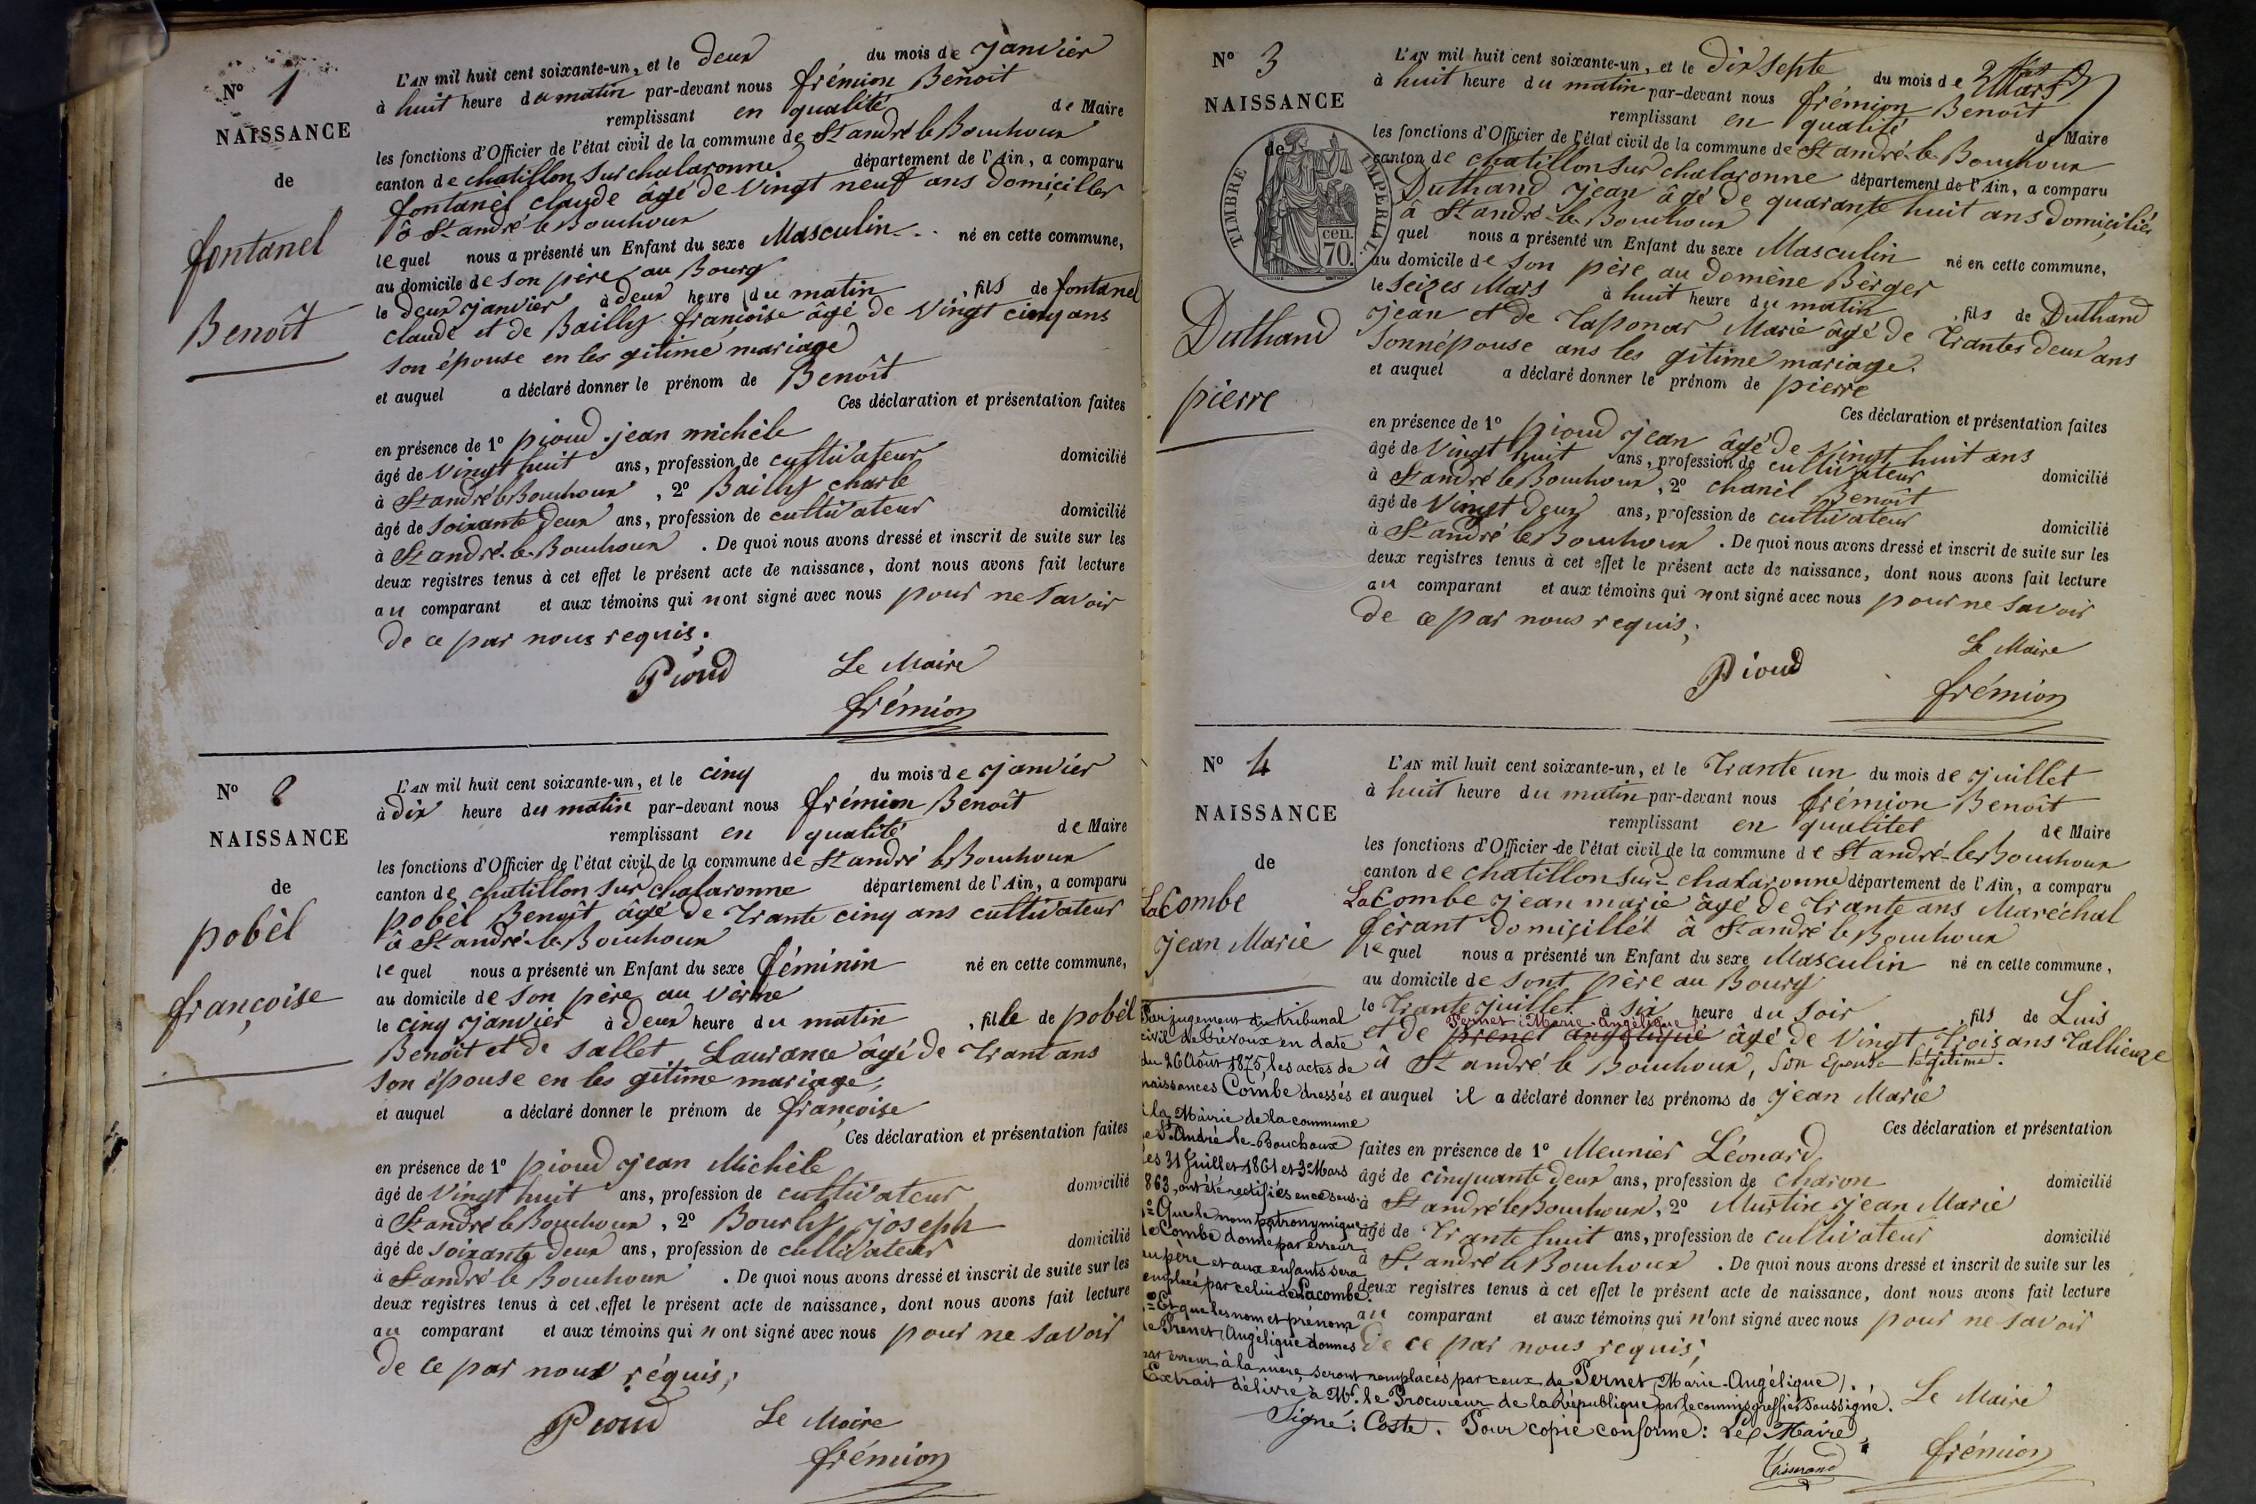 N° 1
NAISSANCE
de
fontanel
Benoît
L'AN mil huit cent soixante-un, et le deux du mois de janvier
à huit heure du matin par-devant nous frémion Benoit
remplissant en qualité de Maire
les fonctions d'Officier de l'état civil de la commune de St andré le Bouchoux
canton de chatillon sur chalaronne département de l'Ain, a comparu
fontanel claude âgé de vingt neuf ans domicilier
à St andré le Bouchoux
lequel nous a présenté un Enfant du sexe Masculin né en cette commune,
au domicile de son père au Bourg
le deux janvier à deux heure du matin, fils de fontanel
claude et de Bailly françoise âgé de vingt cinq ans
son épouse en les gitime mariage
et auquel a déclaré donner le prénom de Benoît
Ces déclaration et présentation faites
en présence de 1° pioud jean michèle
âgé de vingt huit ans, profession de cultivateur domicilié
à St andré le Bouchoux, 2° Bailly charle
âgé de soixante deux ans, profession de cultivateur domicilié
à St andré le Bouchoux. De quoi nous avons dressé et inscrit de suite sur les
deux registres tenus à cet effet le présent acte de naissance, dont nous avons fait lecture
au comparant et aux témoins qui nont signé avec nous pour ne savoir
de ce par nous requis.
Pioud Le Maire
frémion
N° 2
NAISSANCE
de
pobèl
françoise
L'AN mil huit cent soixante-un, et le cinq du mois de janvier
à dix heure du matin par-devant nous frémion Benoît
remplissant en qualité de Maire
les fonctions d'Officier de l'état civil de la commune de St andré le Bouchoux
canton de chatillon sur chalaronne département de l'Ain, a comparu
pobèl Benoît âgé de trante cinq ans cultivateur
à St andré le Bouchoux
lequel nous a présenté un Enfant du sexe féminin né en cette commune,
au domicile de son père au vèrne
le cinq janvier à deux heure du matin, fille de pobèl
Benoît et de Sallet Laurance âgé de trant ans
son épouse en les gitime mariage,
et auquel a déclaré donner le prénom de françoise
Ces déclaration et présentation faites
en présence de 1° pioud jean Michèle
âgé de vingt huit ans, profession de cultivateur domicilié
à St andré le Bouchoux, 2° Bourly joseph
âgé de soixante deux ans, profession de cultivateur domicilié
à St andré le Bouchoux. De quoi nous avons dressé et inscrit de suite sur les
deux registres tenus à cet effet le présent acte de naissance, dont nous avons fait lecture
au comparant et aux témoins qui n ont signé avec nous pour ne savoir
de ce par nous réquis;
Pioud Le Maire
frémion
N° 3
NAISSANCE
de
TIMBRE IMPERIAL
cen. 70.
Duthand
pierre
L'AN mil huit cent soixante-un, et le dix septe du mois de Mars
à huit heure du matin par-devant nous frémion Benoît
remplissant en qualité de Maire
les fonctions d'Officier de l'état civil de la commune de St andré le Bouchoux
canton de chatillon sur chalaronne département de l'Ain, a comparu
Duthand jean âgé de quarante huit ans domicilié
à St andré le Bouchoux
quel nous a présenté un Enfant du sexe Masculin né en cette commune,
au domicile de son père au domène Bèrger
le seizes Mars à huit heure du matin, fils de Duthand
jean et de Taponar Marie âgé de trantes deux ans
sonnépouse ans les gitime mariage.
et auquel a déclaré donner le prénom de pierre
Ces déclaration et présentation faites
en présence de 1° pioud jean âgé de vingt huit ans
âgé de vingt huit ans, profession de cultivateur domicilié
à St andré le Bouchoux, 2° chanèl Benoît
âgé de vingt deux ans, profession de cultivateur domicilié
à St andré le Bouchoux. De quoi nous avons dressé et inscrit de suite sur les
deux registres tenus à cet effet le présent acte de naissance, dont nous avons fait lecture
au comparant et aux témoins qui nont signé avec nous pour ne savoir
de ce par nous requis;
Pioud Le Maire
frémion
N° 4
NAISSANCE
de
LaCombe
jean Marie
L'AN mil huit cent soixante-un, et le trante un du mois de juillet
à huit heure du matin par-devant nous frémion Benoît
remplissant en qualitet de Maire
les fonctions d'Officier de l'état civil de la commune de St andré le Bouchoux
canton de chatillon sur chalaronne département de l'Ain, a comparu
LaCombe jean marie âgé de trante ans Maréchal
férant domicillét à St andré le Bouchoux
lequel nous a présenté un Enfant du sexe Masculin né en cette commune,
au domicile de sont père au Bourg
le trante juillet à six heure du soir, fils de Luis
Pernet Marie-Angélique
et de prenet angélique âgé de vingt trois ans tallieuze
à St andré le Bouchoux, son épouse légitime.
et auquel il a déclaré donner les prénoms de jean Marie
Ces déclaration et présentation
faites en présence de 1° Meunier Léonard
âgé de cinquante deux ans, profession de charon domicilié
à St andré le Bouchoux, 2° Murtin jean Marie
âgé de trante huit ans, profession de cultivateur domicilié
à St andré le Bouchoux. De quoi nous avons dressé et inscrit de suite sur les
deux registres tenus à cet effet le présent acte de naissance, dont nous avons fait lecture
au comparant et aux témoins qui n'ont signé avec nous pour ne savoir
de ce par nous requis;
Le Maire
frémion
Par jugement du tribunal
civil de Trévoux en date
du 26 Août 1875, les actes de
naissances Combe dressés
à la Mairie de la commune
de St André-le-Bouchoux
les 31 Juillet 1861 et 3 Mars
1863, ont été rectifiés en ce sens:
1° Que le nom patronymique
de Combe donné par erreur
au père et aux enfants sera
remplacé par celui de Lacombe.
2° Et que les nom et prénom
de Prenet Angélique donnés
par erreur à la mère, seront remplacés par ceux de Pernet (Marie-Angélique).
Extrait délivré à Mr. le Procureur de la République par le commis greffier soussigné.
Signé: Coste. Pour copie conforme: Le Maire,